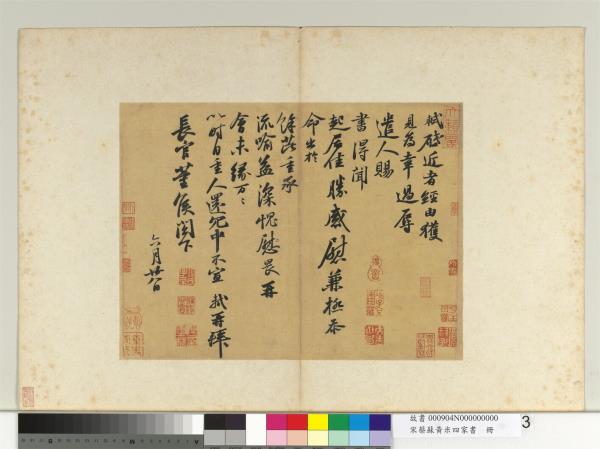 軾啟近者經由獲
見為幸過辱
遣人賜
書得聞
起居佳勝感慰兼極忝
命出於
餘芘重承
流喻益深愧畏再
會未緣萬萬
以時自重人還冗中不宣 軾再拜
長官董侯閣下
六月廿八日
故書 000904N000000000
宋蔡蘇黃米四家書 冊
3